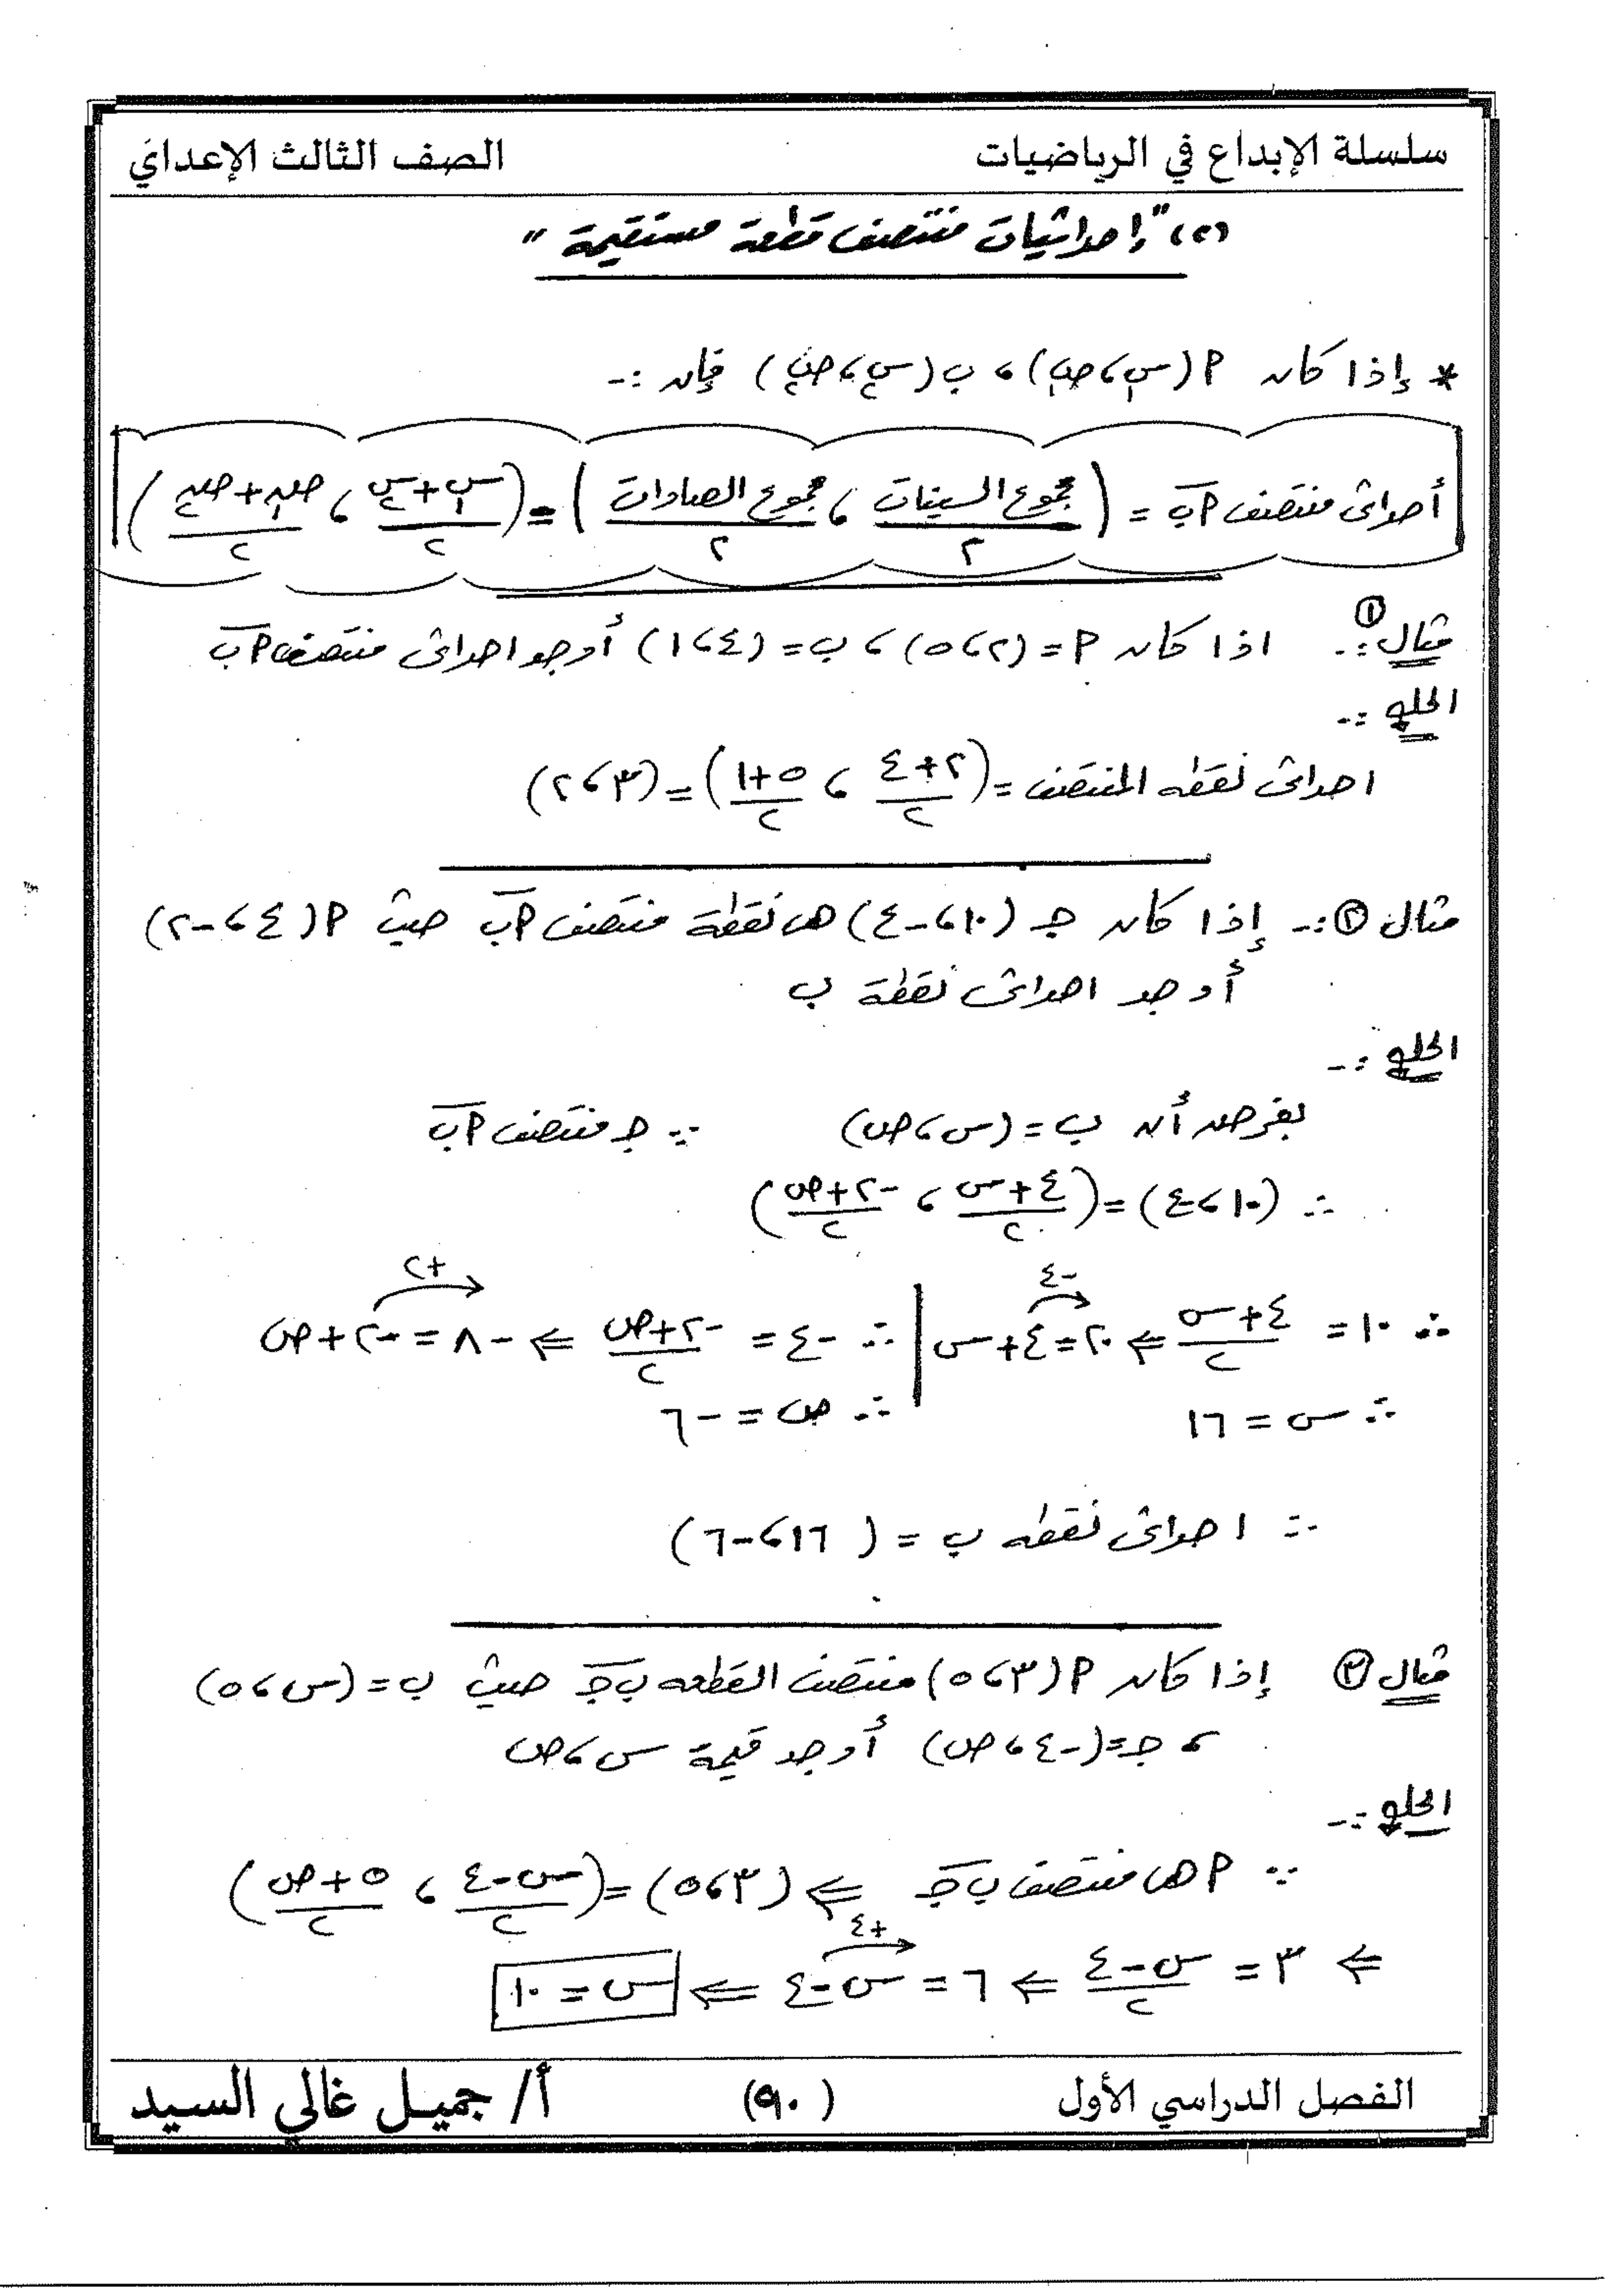 سلسلة الإبداع في الرياضيات
الصف الثالث الإعدادي
(٢) "إحداثيات منتصف قطعة مستقيمة"
* إذا كان P (س١، ص١)، ب (س٢، ص٢) فإن :-
أحداثى منتصف P ب = (مجموع السينات / ٢ ، مجموع الصادات / ٢) = (س١ + س٢ / ٢ ، ص١ + ص٢ / ٢)
مثال ① :- اذا كان P = (٢، ٥) ، ب = (٤، ١) أوجد احداثى منتصف P ب
الحل :-
احداثى نقطه المنتصف = (٢+٤ / ٢ ، ٥+١ / ٢) = (٣، ٢)
مثال ② :- إذا كان جـ (١٠، -٤) هى نقطة منتصف P ب حيث P (٤، -٢)
أوجد احداثى نقطة ب
الحل :-
بفرض أن ب = (س، ص) ∵ جـ منتصف P ب
∴ (١٠، -٤) = (٤+س / ٢ ، -٢+ص / ٢)
-٤ +٢
∴ ١٠ = ٤+س / ٢ ⇐ ٢٠ = ٤+س | ∴ -٤ = -٢+ص / ٢ ⇐ -٨ = -٢+ص
∴ س = ١٦ ∴ ص = -٦
∴ احداثى نقطه ب = (١٦، -٦)
مثال ③ إذا كان P (٣، ٥) منتصف القطعه ب جـ حيث ب = (س، ٥)
، جـ = (-٤، ص) أوجد قيمة س، ص
الحل :-
∵ P هى منتصف ب جـ ⇐ (٣، ٥) = (س-٤ / ٢ ، ٥+ص / ٢)
+٤
⇐ ٣ = س-٤ / ٢ ⇐ ٦ = س-٤ ⇐ س = ١٠
الفصل الدراسي الأول
(٩٠)
أ/ جميل غالي السيد